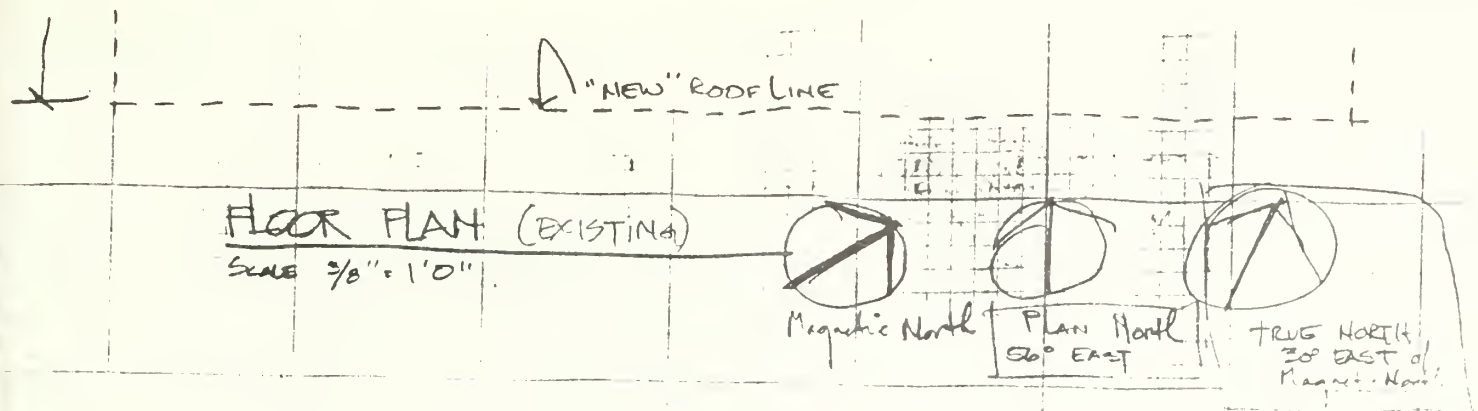 "NEW" ROOF LINE
FLOOR PLAN (EXISTING)
SCALE 3/8" = 1'0"
Magnetic North
PLAN North
56° EAST
TRUE NORTH
30° EAST of
Magnet. North